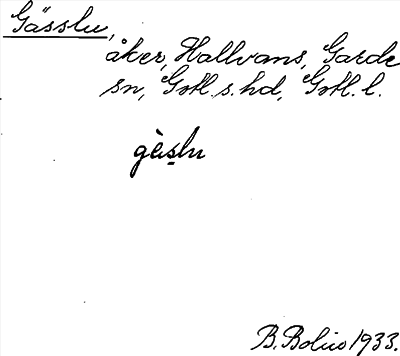 Gässlu,
åker, Hallvans, Garde
sn, Gotl. s. hd, Gotl. l.
gèi̯slu
B. Bolin 1933.